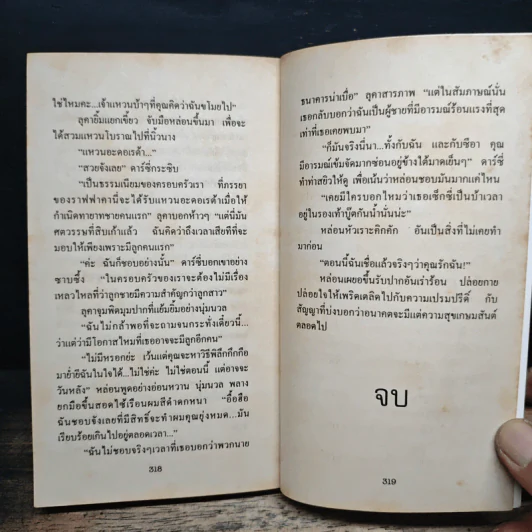 ใช่ไหมคะ...เจ้าแหวนบ้าๆที่คุณคิดว่าฉันขโมยไป"
ลุคายิ้มแยกเขี้ยว จับมือหล่อนขึ้นมา เพื่อจะ
ได้สวมแหวนโบราณไปที่นิ้วนาง
"แหวนอะดอเรต้า..."
"สวยจังเลย" ดาร์ซี่กระซิบ
"เป็นธรรมเนียมของครอบครัวเรา ที่ภรรยา
ของราฟฟาคานี่จะได้รับแหวนอะดอเรต้าเมื่อให้
กำเนิดทายาทชายคนแรก" ลุคาบอกห้าวๆ "แต่นี่มัน
ศตวรรษที่สิบเก้าแล้ว ฉันคิดว่าถึงเวลาเสียทีที่จะ
มอบให้เพียงเพราะมีลูกคนแรก"
"ค่ะ ฉันก็ชอบอย่างนั้น" ดาร์ซี่บอกอย่าง
ซาบซึ้ง "ในครอบครัวของเราจะต้องไม่มีเรื่อง
เหลวไหลที่ว่าลูกชายมีความสำคัญกว่าลูกสาว"
ลุคาจุมพิตมุมปากที่แย้มยิ้มอย่างนุ่มนวล
"ฉันไม่กล้าพอที่จะถามจนกระทั่งเดี๋ยวนี้...
ว่าแต่ว่ามีโอกาสไหมที่เธออาจจะมีลูกอีกคน"
"ไม่มีหรอกย่ะ เว้นแต่คุณจะหาวิธีพิลึกกึกกือ
มาย่ำยีฉันในใจได้...ไม่ใช่ค่ะ ไม่ใช่ตอนนี้ แต่อาจจะ
วันหลัง" หล่อนพูดอย่างอ่อนหวาน นุ่มนวล พลาง
ยกมือขึ้นสอดไซ้เรือนผมสีดำดกหนา "อื้อฮือ
ฉันชอบจังเลยที่มีสิทธิ์จะทำผมคุณยุ่งหมด...มัน
เรียบร้อยเกินไปอยู่ตลอดเวลา..."
"ฉันไม่ชอบจริงๆเวลาที่เธอบอกว่าพวกนาย
318
ธนาคารน่าเบื่อ" ลุคาสารภาพ "แต่ในสัมภาษณ์นั่น
เธอกลับบอกว่าฉันเป็นผู้ชายที่มีอารมณ์ร้อนแรงที่สุด
เท่าที่เธอเคยพบมา"
"ก็มันจริงนี่นา...ทั้งกับฉัน และกับซีอา คุณ
มีอารมณ์เข้มจัดมากซ่อนอยู่ข้างใต้มาดเย็นๆ" ดาร์ซี่
ทำท่าสยิวให้ดู เพื่อเน้นว่าหล่อนชอบมันมากแค่ไหน
"เคยมีใครบอกไหมว่าเธอเซ็กซี่เป็นบ้าเวลา
อยู่ในรองเท้าบู๊ตกันน้ำนั่นน่ะ"
หล่อนหัวเราะคิกคัก อันเป็นสิ่งที่ไม่เคยทำ
มาก่อน
"ตอนนี้ฉันเชื่อแล้วจริงๆว่าคุณรักฉัน!"
หล่อนเผยอขึ้นรับปากอันเร่าร้อน ปล่อยกาย
ปล่อยใจให้เพริดเตลิดไปกับความเปรมปรีดิ์ กับ
สัญญาที่บ่งบอกว่าอนาคตจะมีแต่ความสุขเกษมสันต์
ตลอดไป
จบ
319